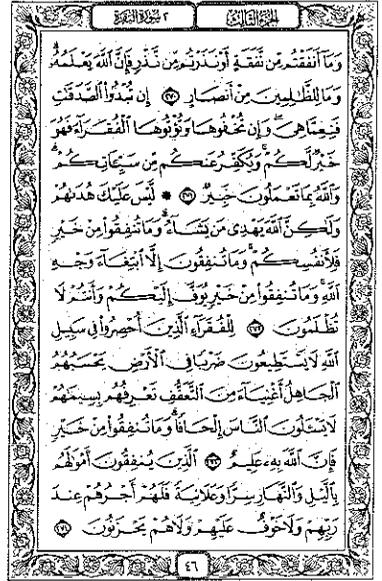 الجزء الثالث ٢ سورة البقرة
وَمَآ أَنفَقْتُم مِّن نَّفَقَةٍ أَوْ نَذَرْتُم مِّن نَّذْرٍ فَإِنَّ ٱللَّهَ يَعْلَمُهُۥ
وَمَا لِلظَّـٰلِمِينَ مِنْ أَنصَارٍ ٢٧٠ إِن تُبْدُوا۟ ٱلصَّدَقَـٰتِ
فَنِعِمَّا هِىَ وَإِن تُخْفُوهَا وَتُؤْتُوهَا ٱلْفُقَرَآءَ فَهُوَ
خَيْرٌ لَّكُمْ وَيُكَفِّرُ عَنكُم مِّن سَيِّـَٔاتِكُمْ
وَٱللَّهُ بِمَا تَعْمَلُونَ خَبِيرٌ ٢٧١ * لَّيْسَ عَلَيْكَ هُدَىٰهُمْ
وَلَـٰكِنَّ ٱللَّهَ يَهْدِى مَن يَشَآءُ وَمَا تُنفِقُوا۟ مِنْ خَيْرٍ
فَلِأَنفُسِكُمْ وَمَا تُنفِقُونَ إِلَّا ٱبْتِغَآءَ وَجْهِ
ٱللَّهِ وَمَا تُنفِقُوا۟ مِنْ خَيْرٍ يُوَفَّ إِلَيْكُمْ وَأَنتُمْ لَا
تُظْلَمُونَ ٢٧٢ لِلْفُقَرَآءِ ٱلَّذِينَ أُحْصِرُوا۟ فِى سَبِيلِ
ٱللَّهِ لَا يَسْتَطِيعُونَ ضَرْبًا فِى ٱلْأَرْضِ يَحْسَبُهُمُ
ٱلْجَاهِلُ أَغْنِيَآءَ مِنَ ٱلتَّعَفُّفِ تَعْرِفُهُم بِسِيمَـٰهُمْ
لَا يَسْـَٔلُونَ ٱلنَّاسَ إِلْحَافًا وَمَا تُنفِقُوا۟ مِنْ خَيْرٍ
فَإِنَّ ٱللَّهَ بِهِۦ عَلِيمٌ ٢٧٣ ٱلَّذِينَ يُنفِقُونَ أَمْوَٰلَهُم
بِٱلَّيْلِ وَٱلنَّهَارِ سِرًّا وَعَلَانِيَةً فَلَهُمْ أَجْرُهُمْ عِندَ
رَبِّهِمْ وَلَا خَوْفٌ عَلَيْهِمْ وَلَا هُمْ يَحْزَنُونَ ٢٧٤
٤٦